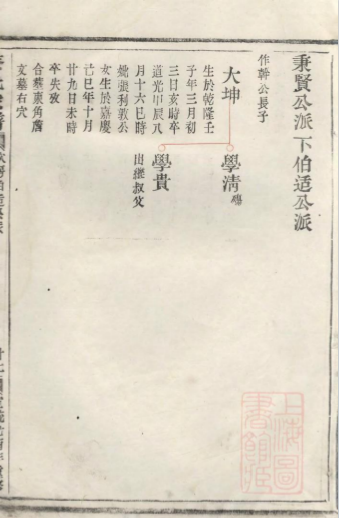 秉賢公派下伯适公派
作幹公長子
大坤
生於乾隆壬
子年三月初
三日亥時卒
道光甲辰八
月十六巳時
娶張利敦公
女生於嘉慶
己巳年十月
廿九日未時
卒失攷
合葬東角廇
文墓右穴
學清
學貴
出繼叔父
上海圖
書館藏